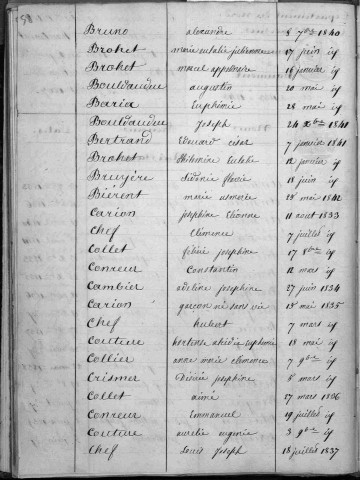 58
Bruno alexandre 8 7bre 1840
Brohet marie eulalie julienne 17 juin id
Brohet marcel appolinaire 16 janvier id
Bouldaudue augustin 20 mai id
Baria Euphémie 28 mai id
Bouldaudue Joseph 24 Xbre 1840
Bertrand Edouard césar 7 janvier 1841
Brohet Philomène 12 janvier id
Bruyère Sidonie florie 18 juin id
Bièrent marie 15 mai 1842
Carion josephine éléonne 11 aout 1833
Chef Clémence 7 juillet id
Collet félicité josephine 17 8bre id
Conreur Constantin 12 mars id
Cambier adeline josephine 27 juin 1834
Carion garçon né sans vie 15 mai 1835
Chef hubert 7 mars id
Couture hortense Euphémie 18 mai id
Collier anne marie clémence 7 9bre id
Crismer Désirée josephine 5 mars id
Collet aimé 27 mars 1836
Conreur Emmanuel 19 juillet id
Couture aurelie eugenie 3 9bre id
Chef Louis Joseph 18 juillet 1837